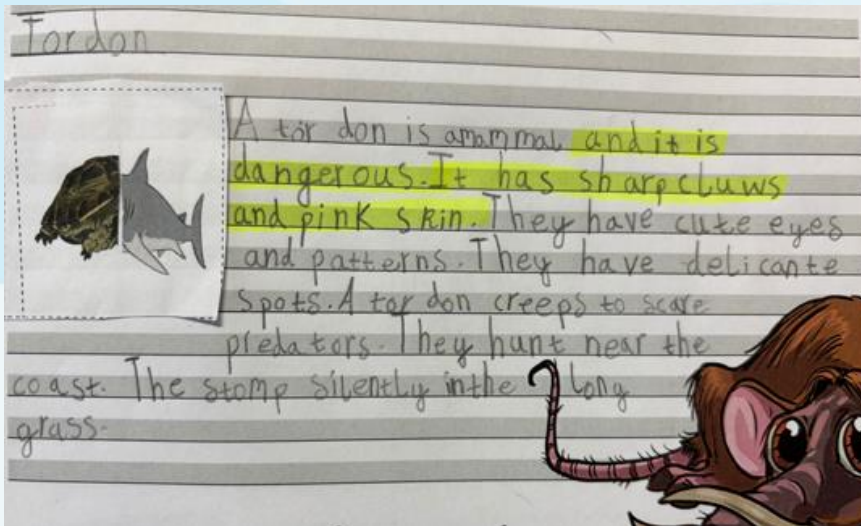 Tordon
A tor don is amammal and it is
dangerous. It has sharp cluws
and pink skin. They have cute eyes
and patterns. They have delicante
spots. A tor don creeps to scare
predators. They hunt near the
coast. The stomp silently inthe long
grass.